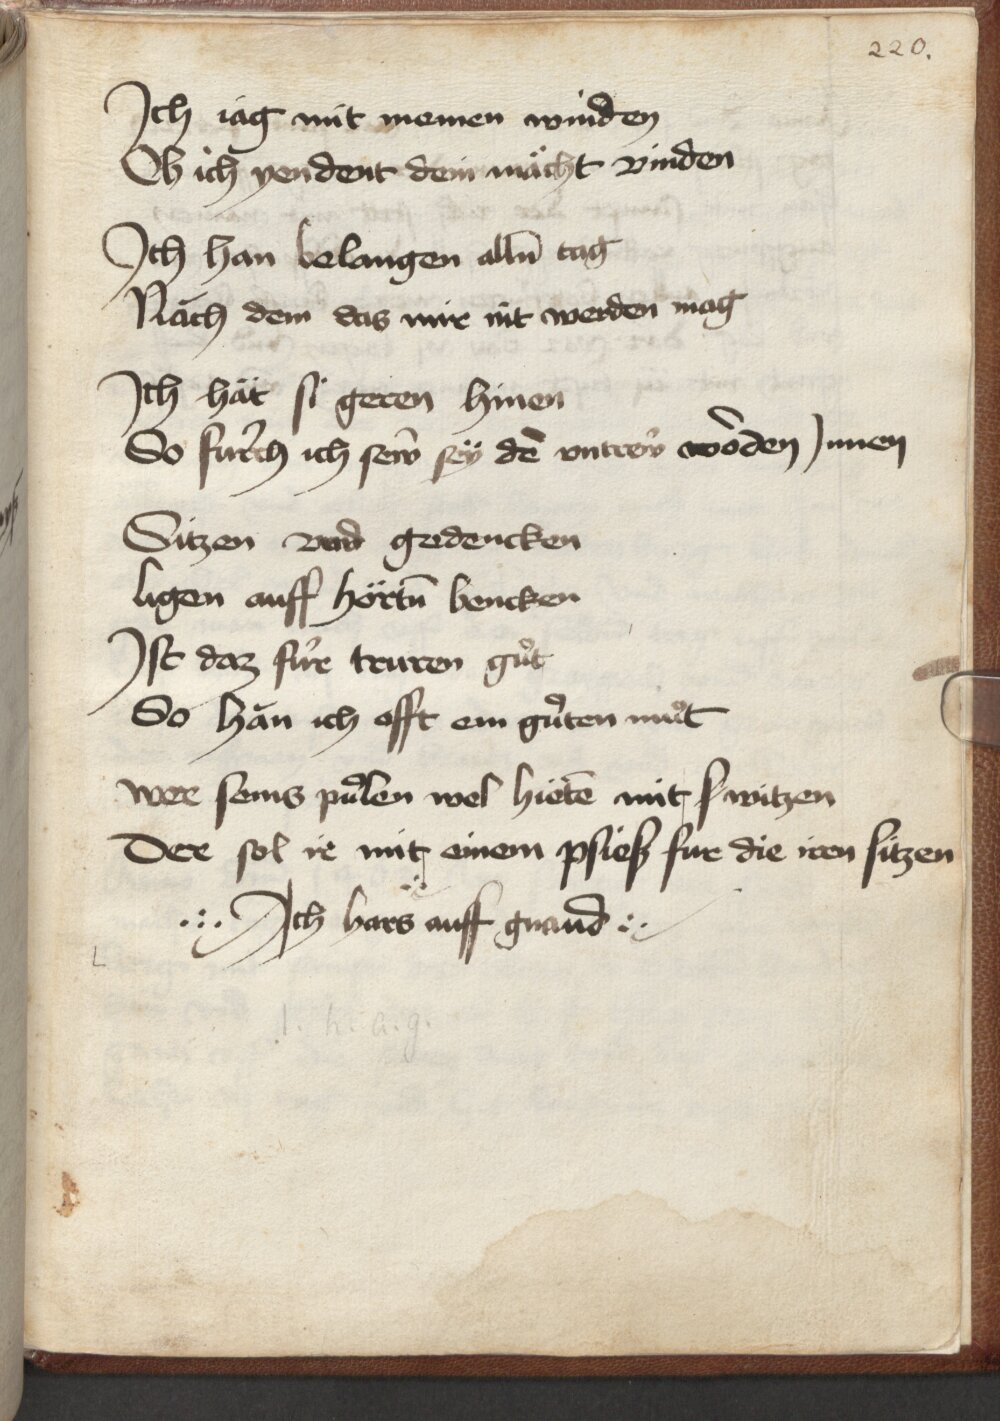 220.
Ich iag mit meinen winden
Ob ich yendert dein mächt vinden
Ich han belangen alln̄ tag
Nǎch dem das mir nit werden mag
Ich hät si geren hinen
So furch ich sew sey dē vntrew worden Innen
Sitzen vnd gedencken
ligen auff hörtn̄ bencken
Ist daz für truren gůt
So hǎn ich offt ein gůten můt
wer seins půlen wel hietē mit switzen
Der sol ir mit einem psiesß fur die iren sitzen
Ich hars auff gnand
l. h. a. g.